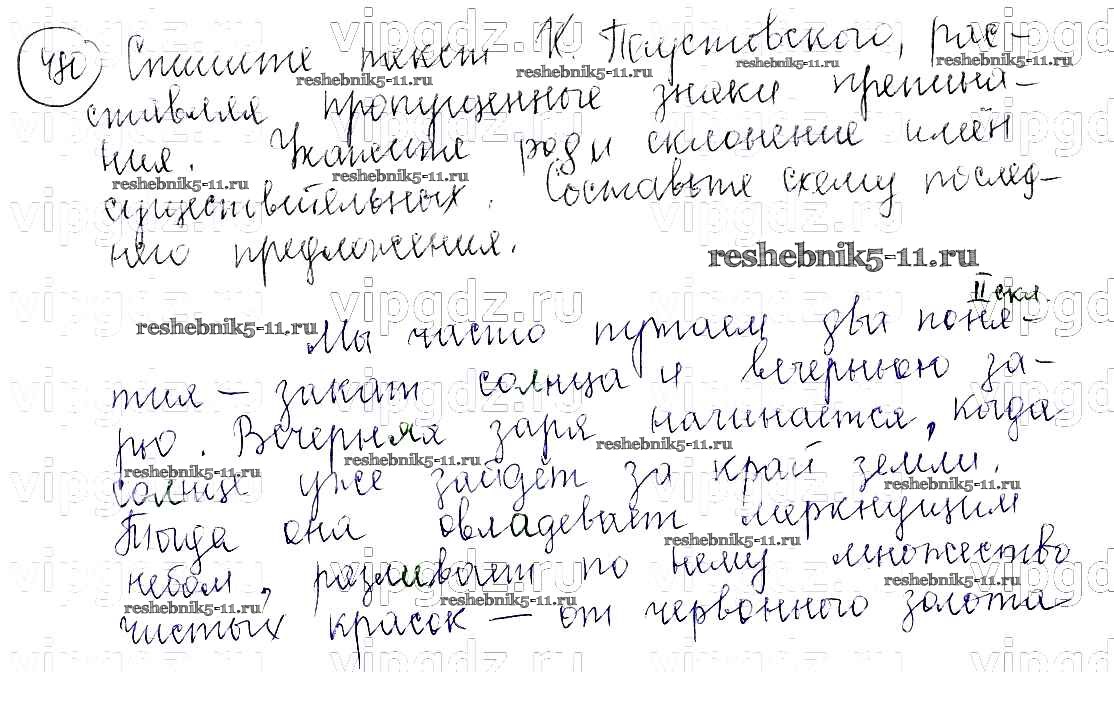 480 Спишите текст К. Паустовского, рас-
ставляя пропущенные знаки препина-
ния. Укажите род и склонение имён
существительных. Составьте схему послед-
него предложения.
reshebnik5-11.ru
II скл.
Мы часто путаем два поня-
тия — закат солнца и вечернюю за-
рю. Вечерняя заря начинается, когда
солнце уже зайдёт за край земли.
Тогда она овладевает меркнущим
небом, разливает по нему множество
чистых красок — от червонного золота